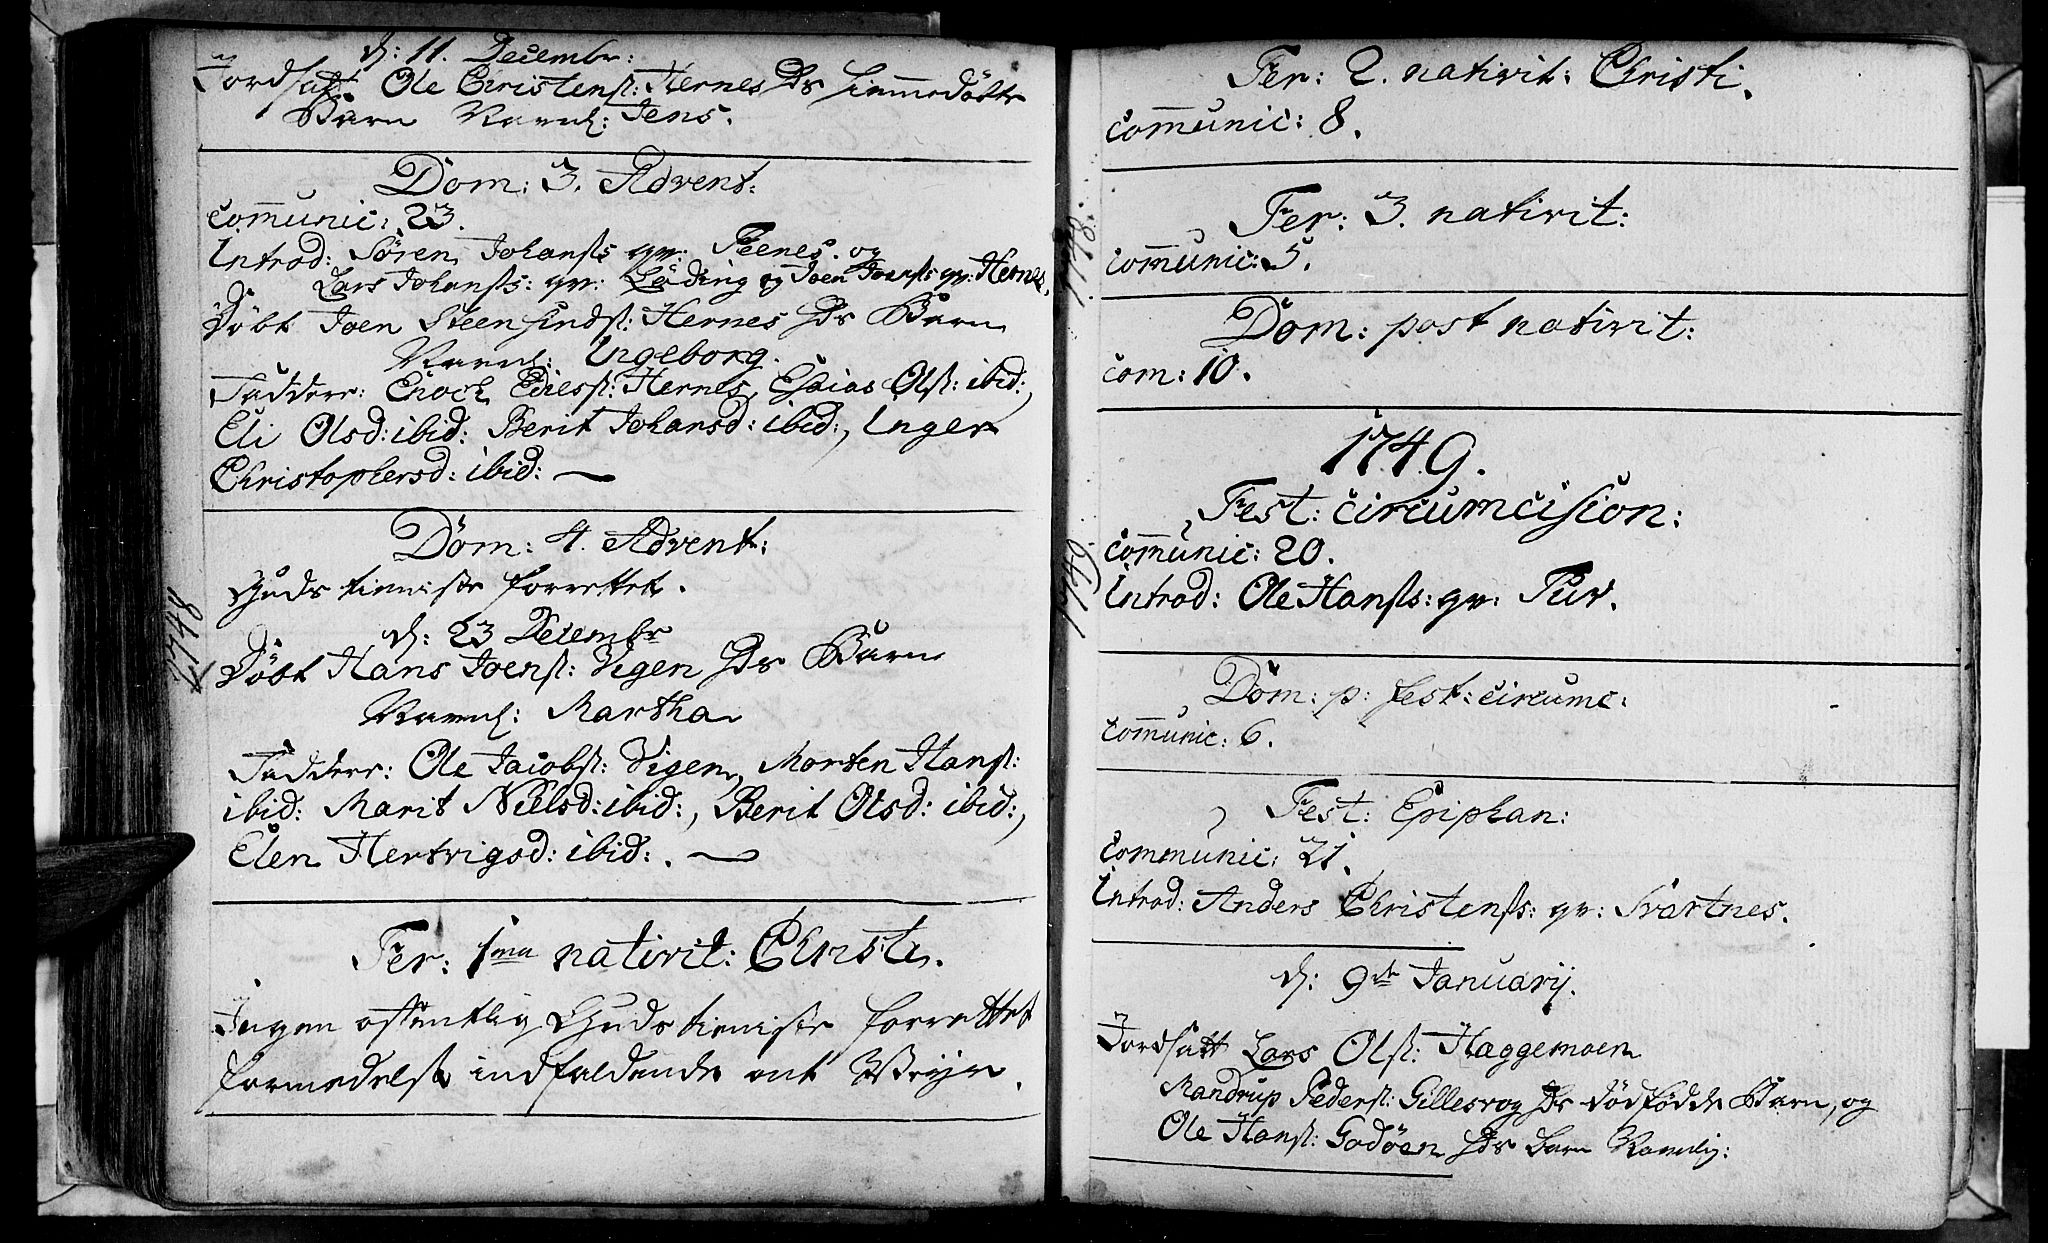 d: 11. Decembr:
Jordsatt Ole Christensß: Hernes Hs hiemmedöbte
Barn Navnl: Jens.
Dom: 3. Advent:
Communic: 23.
Introd: Sören Johanßs gv: og
Lars Johanßs: gv: Löding og Joen Joenßs gv: Hernes.
Döbt Joen Steen Hernes Hs Barn
Navnl: Ingeborg.
Faddere: Enoch Hernes, Esaias Olß: ibid:,
Eli Olsd: ibid: Berit Johansd: ibid:, Inger
Christophersd: ibid: —
1748
Dom: 4. Advent:
Guds tieniste forrettet.
d: 23 Decembr
Döbt Hans Joenß: Vigen Hs Barn
Navnl: Martha
Faddere: Ole Jacobß: Vigen, Morten Hanß:
ibid: Marit Nielsd: ibid:, Berit Olsd: ibid:,
Elen Hertvigsd: ibid: . —
Fer: 1ma nativit: Christi.
Ingen offentlig Guds tieniste forrettet
formedelst indfaldende ont Veyr.
Fer: 2. nativit: Christi.
Communic: 8.
1748.
Fer: 3. nativit:
Communic: 5.
Dom: post nativit:
Com: 10.
1749.
Fest: circumcision:
1749.
Communic: 20.
Introd: Ole Hanßs: gv:
Dom: p: fest: circumc:
Communic: 6.
Fest: Epiphan:
Communic: 21.
Introd: Anders Christenßs: gv: Svartnes.
d: 9de Januarij.
Jordsatt Lars Olß: Haggemoen
Mandrup Pederß: Gillesvog Hs dödfödde Barn, og
Ole Hanß: Godöen Hs barn Navnlig: